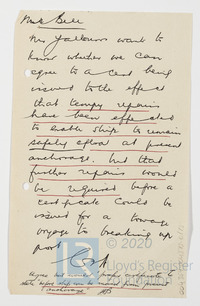 Mr Bell
Mr Jallours want to
know whether we can
agree to a cert being
issued to the effect
that tempy repairs
have been effected
to enable ship to remain
safely afloat at present
anchorage. but that
further repairs would
be required before a
certificate could be
issued for a towage
voyage to breaking up
port
© 2020
Lloyd's Register
state before ship can be moved from present
anchorage